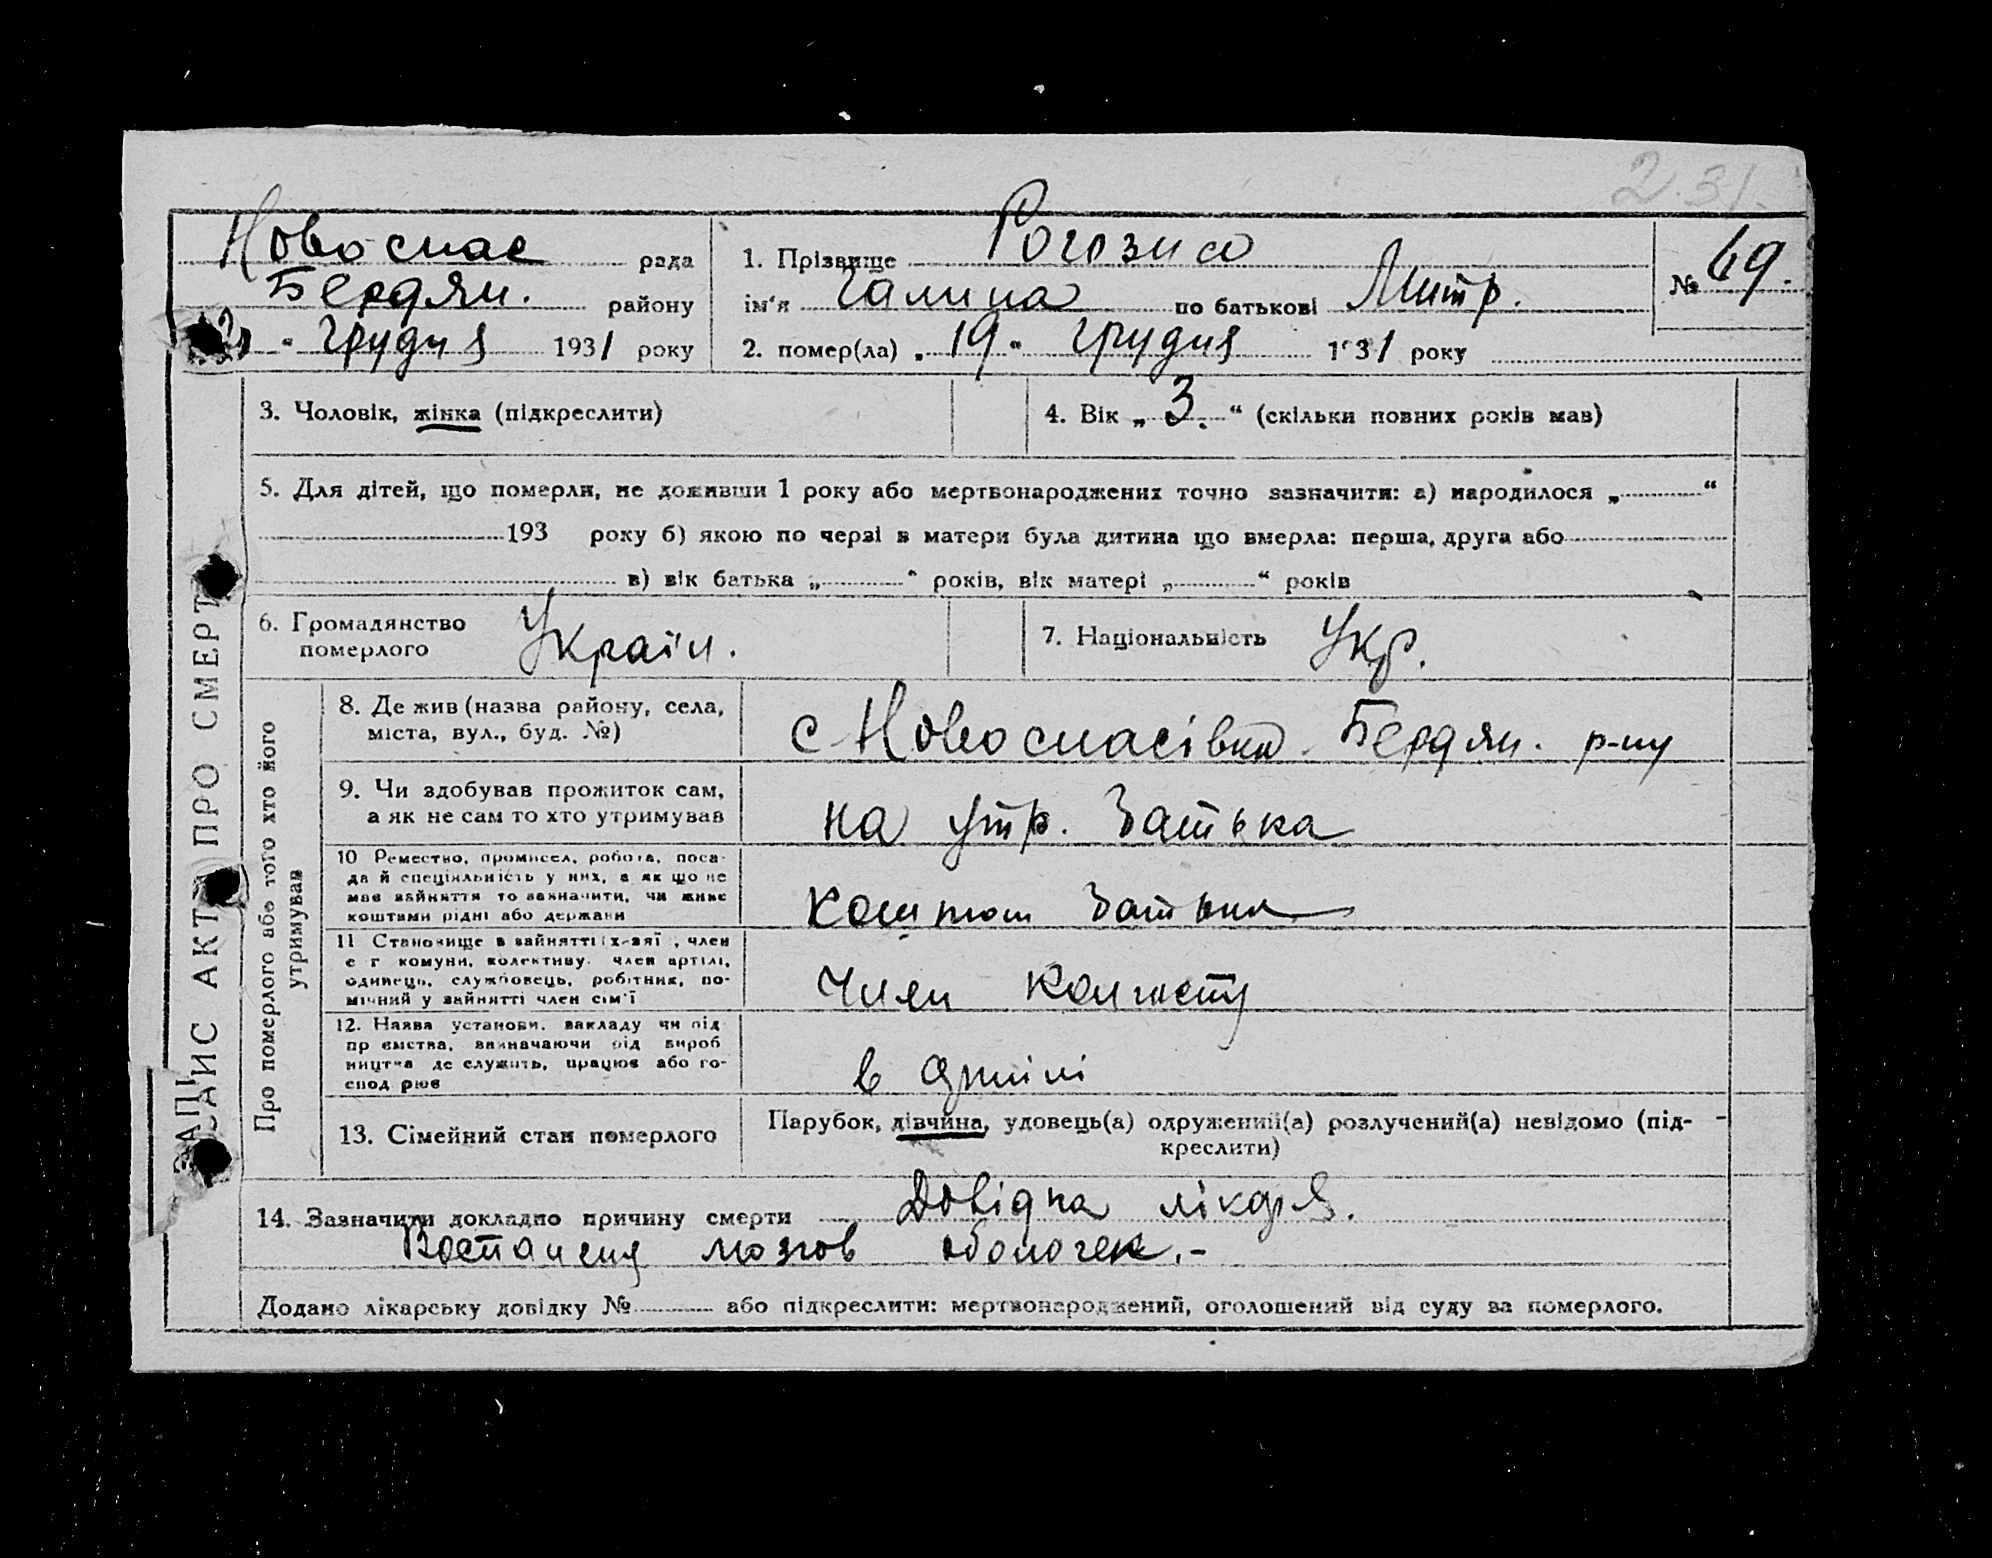 2.31.
Новоспас рада
Бердян. району
грудня 1931 року
1. Прізвище Рогозна
ім'я Галина по батькові Митр.
№ 69.
2. помер(ла) „19" грудня 1931 року
ЗАПИС АКТ ПРО СМЕРТ
3. Чоловік, жінка (підкреслити)
4. Вік „3." (скільки повних років мав)
5. Для дітей, що померли, не доживши 1 року або мертвонароджених точно зазначити: а) народилося „ “
193 року б) якою по черзі в матери була дитина що вмерла: перша, друга або
в) вік батька „ “ років, вік матері „ “ років
6. Громадянство
померлого
Україн.
7. Національність Укр.
Про померлого або того хто його
утримував
8. Де жив (назва району, села,
міста, вул., буд. №)
с Новоспасівка Бердян. р-ну
9. Чи здобував прожиток сам,
а як не сам то хто утримував
на утр. батька
10 Ремество, промисел, робота, поса-
да й спеціяльність у них, а як що не
має зайняття то зазначити, чи живе
коштами рідні або держави
коштом батька
11 Становище в зайнятті член
с г комуни, колективу. член артілі,
одинець, службовець, робітник, по-
мічний у зайнятті член сім'ї
Член колгоспу
12. Назва установи, закладу чи під
пр ємства, визначаючи рід вироб
ництва де служить, працює або го-
спод рює
в артілі
13. Сімейний стан померлого
Парубок, дівчина, удовець(а) одружений(а) розлучений(а) невідомо (під-
креслити)
14. Зазначити докладно причину смерти Довідка лікаря.
Воспаленя мозгов оболочек.-
Додано лікарську довідку № або підкреслити: мертвонароджений, оголошений від суду за померлого.